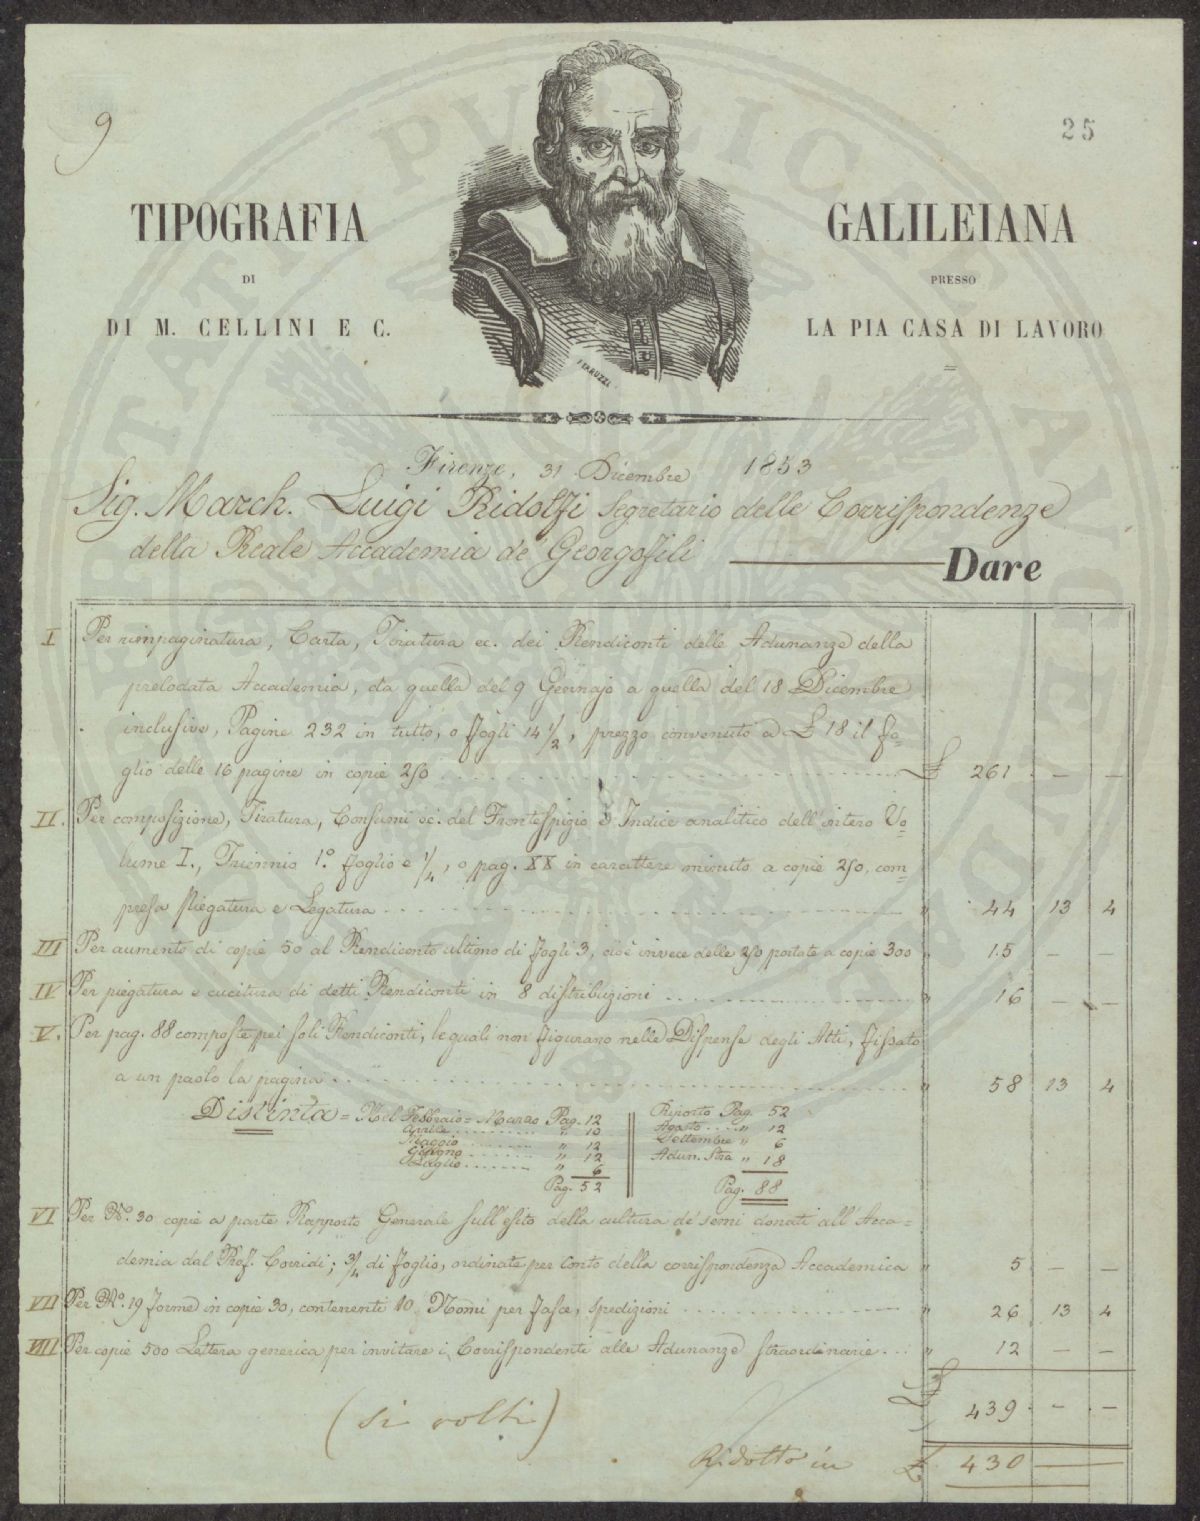 9
25
TIPOGRAFIA
DI
DI M. CELLINI E C.
GALILEIANA
PRESSO
LA PIA CASA DI LAVORO
Firenze, 31 Dicembre 1853
Sig. March. Luigi Ridolfi Segretario delle Corrispondenze
della Reale Accademia de' Georgofili Dare
I Per rimpaginatura, Carta, Tiratura ec. dei Rendiconti delle Adunanze della
prelodata Accademia, da quella del 9 Gennajo a quella del 18 Dicembre
inclusive, Pagine 232 in tutto, o fogli 14 1/2, prezzo convenuto a £ 18 il fo=
glio delle 16 pagine in copie 250 £ 261 — —
II. Per composizione, Tiratura, Consumi ec. del Frontespizio e Indice analitico dell'intero Vo=
lume I., Triennio 1° foglio e 1/4, o pag. XX in carattere minuto a copie 250, com=
presa Piegatura e Legatura " 44 13 4
III Per aumento di copie 50 al Rendiconto ultimo di fogli 3, cioè invece delle 250 portate a copie 300 " 15 — —
IV Per piegatura e cucitura di detti Rendiconti in 8 distribuzioni " 16 — —
V. Per pag. 88 composte pei soli Rendiconti, le quali non figurano nelle Dispense degli Atti, fissato
a un paolo la pagina " 58 13 4
Distinta = Nel Febbraio = Marzo Pag. 12
Aprile " 10
Maggio " 12
Giugno " 12
Luglio " 6
Pag. 52
Riporto Pag. 52
Agosto " 12
Settembre " 6
Adun. Stra " 18
Pag. 88
VI Per N°. 30 copie a parte Rapporto Generale sull'esito della cultura de' semi donati all'Acca=
demia dal Prof. Corridi; 3/4 di foglio, ordinate per conto della corrispondenza Accademica " 5 — —
VII Per N°. 19 forme in copie 30, contenenti 10 Nomi per fasce, spedizioni " 26 13 4
VIII Per copie 500 Lettera generica per invitare i Corrispondenti alle Adunanze straordinarie " 12 — —
£ 439 — —
(si volti)
Ridotto in £ 430